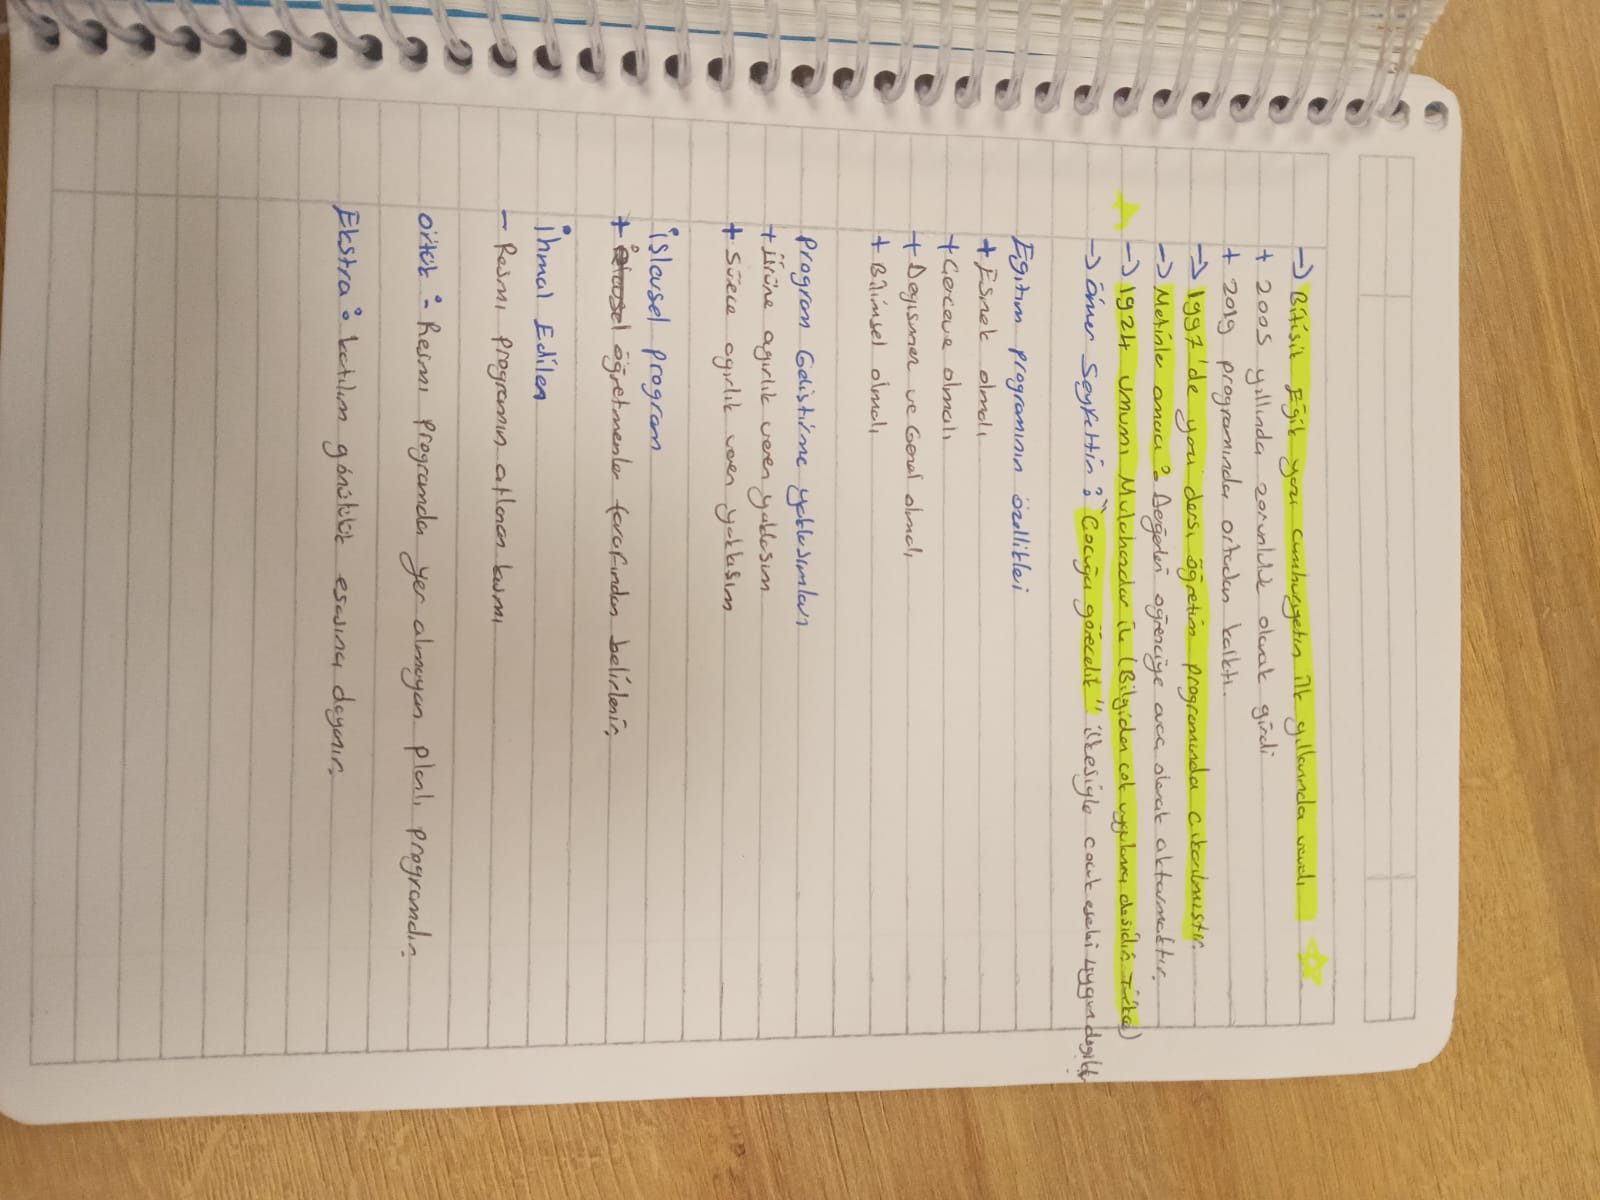 → Bitişik Eğik yazı cumhuriyetin ilk yıllarında vardı
+ 2005 yılında zorunlu olarak girdi
+ 2019 programında ortadan kalktı.
→ 1997'de yazı dersi öğretim programında çıkarılmıştır.
→ Metinler amacı: Değerleri öğrenciye araç olarak aktarmaktır.
→ 1924 umumi Mulahazalar ile (Bilgiden çok uygulama dersidir Türkçe)
→ Ömer Seyfettin: "Çocuğa görecelik" ilkesiyle çocuk uygun değildir
Eğitim programının özellikleri
+ Esnek olmalı
+ Çerçeve olmalı
+ Değişmez ve Genel olmalı
+ Bilimsel olmalı
Program Geliştirme yaklaşımları
+ Ürüne ağırlık veren yaklaşım
+ Sürece ağırlık veren yaklaşım
işlevsel program
+ öğretmenler tarafından belirlenir.
ihmal Edilen
- Resmi programın atlanan kısmı
örtük: Resmi programda yer almayan planlı programdır.
Ekstra: katılım gönüllülük esasına dayanır.